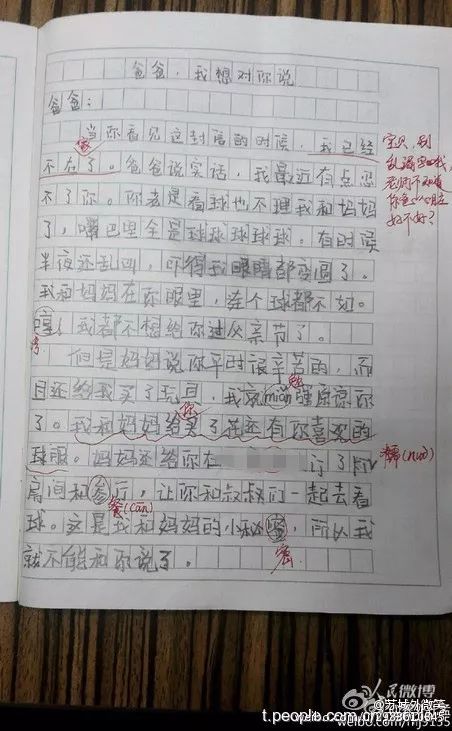 爸爸，我想对你说
爸爸：
当你看见这封信的时候，我已经
家
不在了。爸爸说实话，我最近有点忍
不了你。你老是看球也不理我和妈妈
了，嘴巴里全是球球球球球。有时候
半夜还乱叫，吓得我眼睛都变圆了。
我和妈妈在你眼里，连个球都不如。
哼！我都不想给你过父亲节了。
但是妈妈说你平时很辛苦的，而
且还给我买了玩具，我就mian强原谅你
勉
你
了。我和妈妈给买了花还有你喜欢的
球服。妈妈还给你在 订了
房间和餐厅，让你和叔叔们一起去看
餐(cān)
球。这是我和妈妈的小秘密，所以我
就不能和你说了。
密
宝贝，别
好不好？
人民微博
@苏城外微笑
t.people.com.cn
weibo.com/nj9135